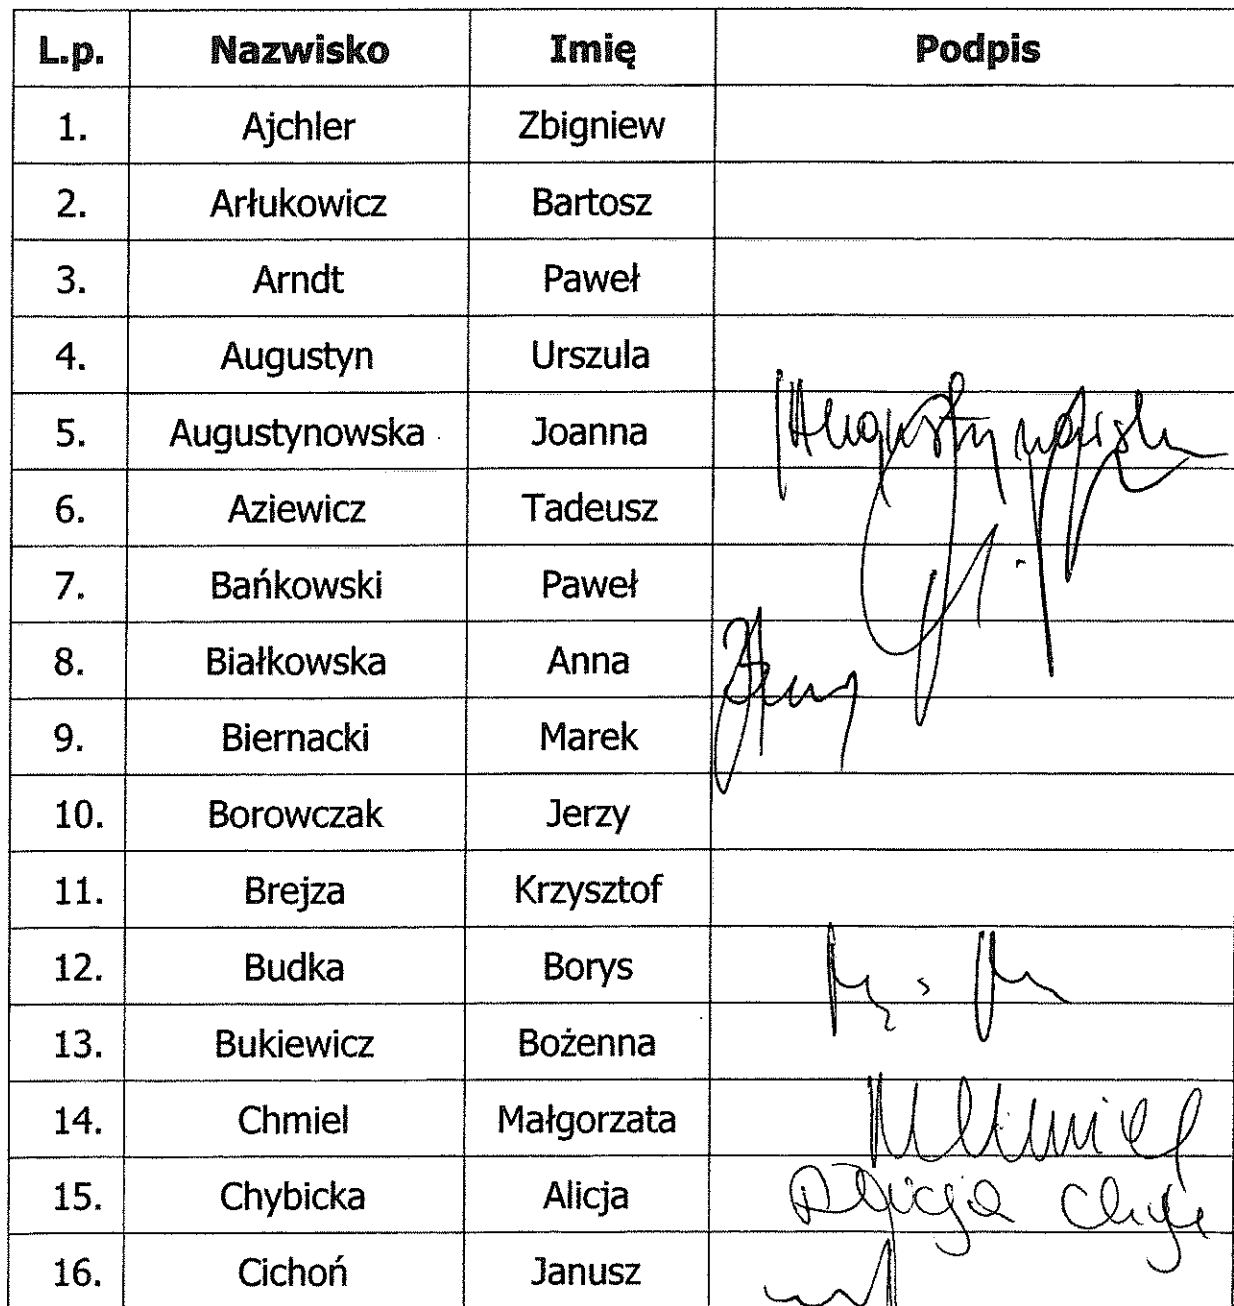 L.p. Nazwisko Imię Podpis
1. Ajchler Zbigniew
2. Arłukowicz Bartosz
3. Arndt Paweł
4. Augustyn Urszula
5. Augustynowska Joanna
6. Aziewicz Tadeusz
7. Bańkowski Paweł
8. Białkowska Anna
9. Biernacki Marek
10. Borowczak Jerzy
11. Brejza Krzysztof
12. Budka Borys
13. Bukiewicz Bożenna
14. Chmiel Małgorzata
15. Chybicka Alicja Alicja
16. Cichoń Janusz